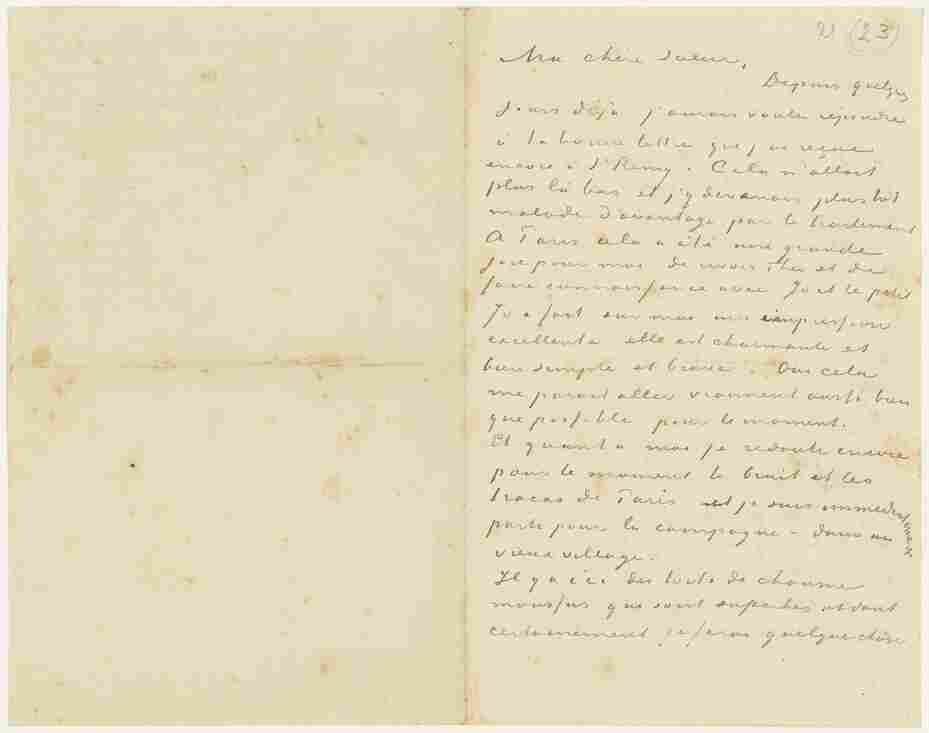 21 (23)
Ma chère soeur,
Depuis quelques
jours déjà j'aurais voulu répondre
à ta bonne lettre que j'ai reçue
encore à St Remy. Cela n'allait
plus là bas et j'y devenais plus tôt
malade d'avantage par le traitement
A Paris cela a été une grande
joie pour moi de revoir Theo et de
faire connaissance avec Jo et le petit
Jo a fait sur moi une impression
excellente elle est charmante et
bien simple et brave. Oui cela
me parait aller vraiment aussi bien
que possible pour le moment.
Et quant à moi je redoute encore
pour le moment le bruit et les
tracas de Paris et je suis immédiatement
parti pour la campagne – dans un
vieux village.
Il y a ici des toits de chaume
moussus qui sont superbes et dont
certainement je ferai quelque chôse